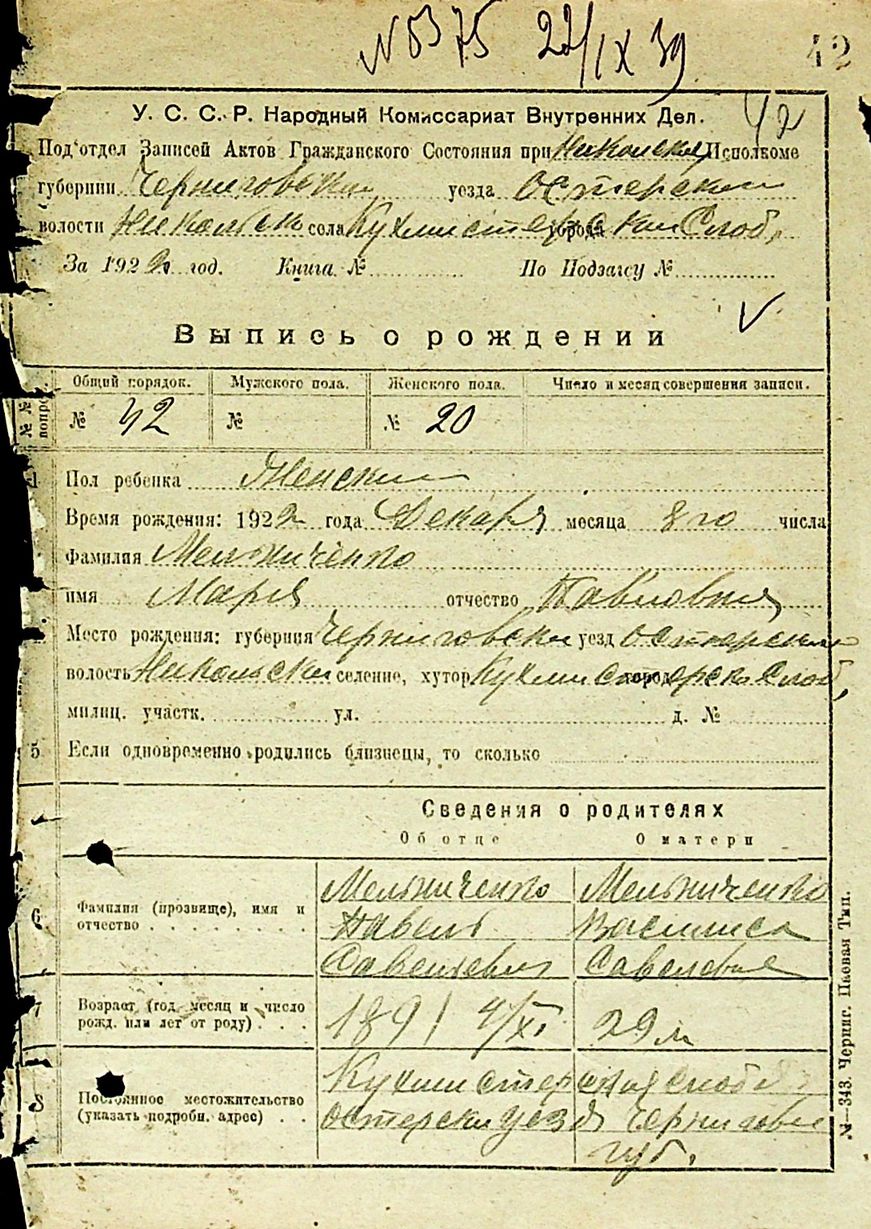 № 5375 22/IX 39
42
42
У. С. С. Р. Народный Комиссариат Внутренних Дел.
Под'отдел Записей Актов Гражданского Состояния при Никольск Исполкоме
губернии Черниговской уезда Остерский
волости Никольск села Кухмистерской города Слоб,
За 1922 год. Книга № По Подзагсу №
V
Выпись о рождении
№№ вопр. Общий порядок. Мужского пола. Женского пола. Число и месяц совершения записи.
№ 42 № № 20
1 Пол ребенка Женский
Время рождения: 1922 года Декаря месяца 8го числа
Фамилия Мельниченко
имя Мария отчество Павловна
Место рождения: губерния Черниговски уезд Остерский
волость Никольски селение, хутор Кухмистерск город Слоб,
милиц. участк. ул. д. №
5 Если одновременно родились близнецы, то сколько
Сведения о родителях
Об отце О матери
6 Фамилия (прозвище), имя и отчество Мельниченко Мельниченко
Павель Василиса
Савельевич Савелевна
7 Возраст (год, месяц и число рожд. или лет от роду) 1891 4/XI 29 л
8 Постоянное местожительство (указать подробн. адрес) Кухмистерская слобода
Остерски уезд Чернигове
губ.
№—343. Черниг. Паевая Тип.